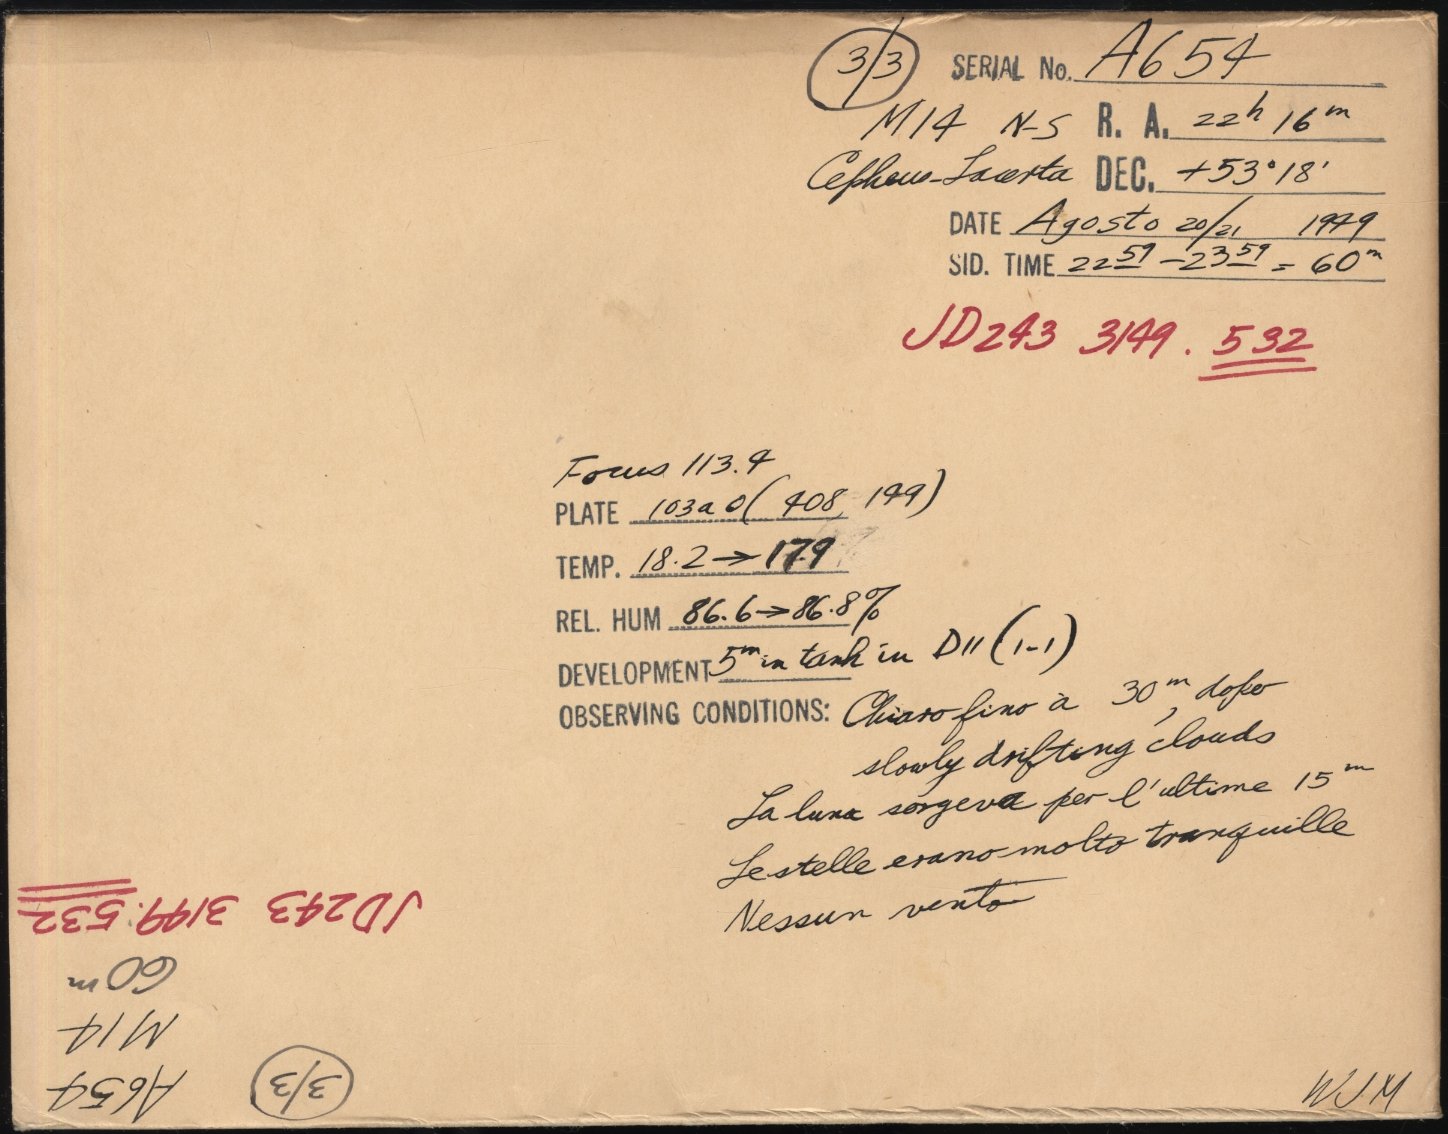 3/3 SERIAL No. A654
M14 N-S R. A. 22h 16m
Cepheus-Lacerta DEC. +53°18'
DATE Agosto 20/21 1949
SID. TIME 22 59 - 23 59 = 60m
JD243 3149.532
Focus 113.4
PLATE 103a O (408, 149)
TEMP. 18.2 → 17.9
REL. HUM 86.6 → 86.8%
DEVELOPMENT 5m in tank in D11 (1-1)
OBSERVING CONDITIONS: Chiaro fino à 30m, dopo
slowly drifting clouds
La luna sorgeva per l'ultime 15m
Le stelle erano molto tranquille
Nessun vento
JD243 3149.532
60m
M14
A654 3/3
WJM